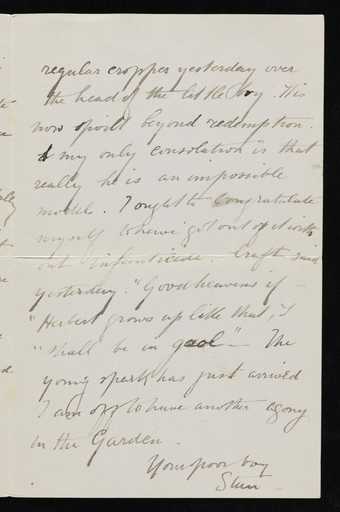 regular cropper yesterday over
the head of the little boy. His
now spoilt beyond redemption.
& my only consolation is that
really he is an impossible
model. I ought to congratulate
myself when I got out of it with-
out infanticide. Craft said
yesterday. "Good heavens if
"Herbert grows up like that, I
"shall be in gaol" - The
young spark has just arrived
I am off to have another agony
in the Garden.
Your poor boy